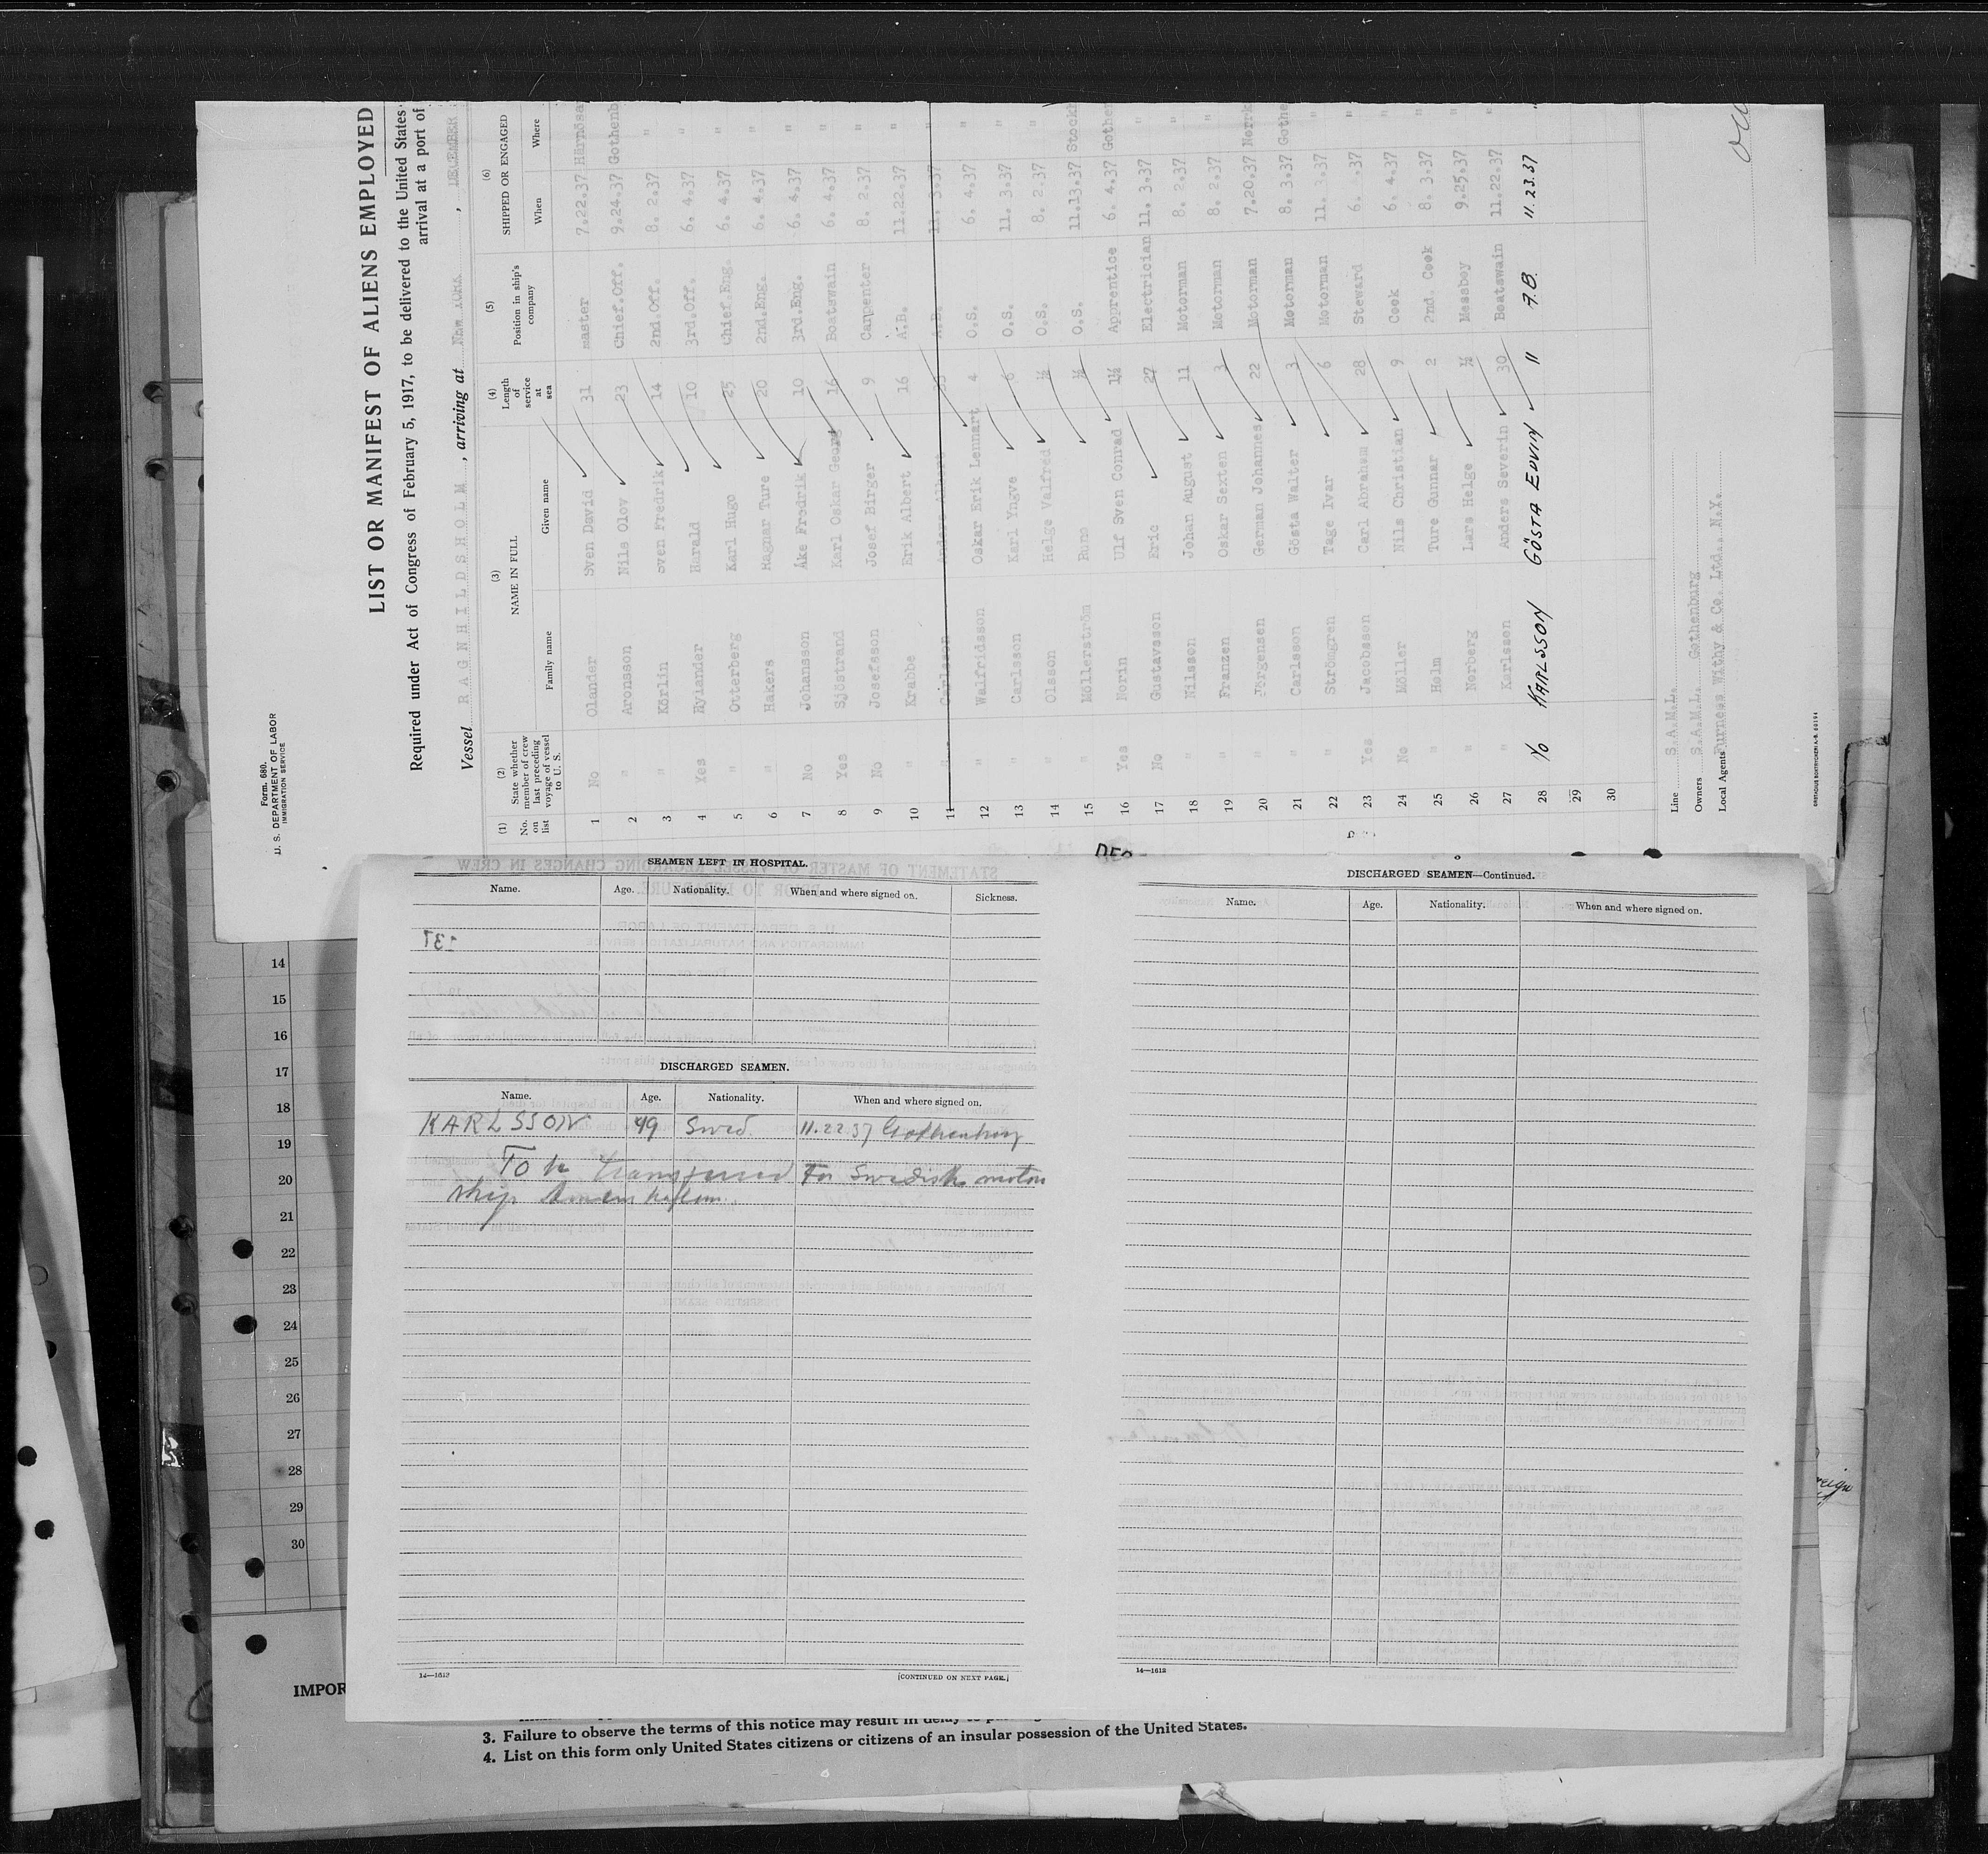 Form 680.
U. S. DEPARTMENT OF LABOR
IMMIGRATION SERVICE
LIST OR MANIFEST OF ALIENS EMPLOYED
Required under Act of Congress of February 5, 1917, to be delivered to the United States
arrival at a port of
Vessel RAGNHILDSHOLM, arriving at New YORK, DECEMBER
(1) No. on list (2) State whether member of crew last preceding voyage of vessel to U. S. (3) NAME IN FULL Family name Given name (4) Length of service at sea (5) Position in ship's company (6) SHIPPED OR ENGAGED When Where
1 No Olander Sven David 31 master 7.22.37 Härnösa
2 " Aronsson Nils Olov 23 Chief.Off. 9.24.37 Gothenb
3 " Körlin Sven Fredrik 14 2nd.Off. 8. 2.37 "
4 Yes Rylander Harald 10 3rd.Off. 6. 4.37 "
5 " Otterberg Karl Hugo 25 Chief.Eng. 6. 4.37 "
6 " Hakers Ragnar Ture 20 2nd.Eng. 6. 4.37 "
7 No Johansson Åke Fredrik 10 3rd.Eng. 6. 4.37 "
8 Yes Sjöstrand Karl Oskar Georg 16 Boatswain 6. 4.37 "
9 No Josefsson Josef Birger 9 Carpenter 8. 2.37 "
10 " Krabbe Erik Albert 16 A.B. 11.22.37 "
11 " Carlsson Albert A.B. 11. 3.37 "
12 " Walfridsson Oskar Erik Lennart 4 O.S. 6. 4.37 "
13 " Carlsson Karl Yngve 6 O.S. 11. 3.37 "
14 " Olsson Helge Valfred ½ O.S. 8. 2.37 "
15 " Möllerström Rune ½ O.S. 11.13.37 Stockh
16 Yes Norin Ulf Sven Conrad 1½ Apprentice 6. 4.37 Gothen
17 No Gustavsson Eric 27 Electrician 11. 3.37 "
18 " Nilsson Johan August 11 Motorman 8. 2.37 "
19 " Franzen Oskar Sexten 3 Motorman 8. 2.37 "
20 " Jörgensen German Johannes 22 Motorman 7.20.37 Norrk
21 " Carlsson Gösta Walter 3 Motorman 8. 3.37 Gothe
22 " Strömgren Tage Ivar 6 Motorman 11. 3.37 "
23 Yes Jacobsson Carl Abraham 28 Steward 6. .37 "
24 No Möller Nils Christian 9 Cook 6. 4.37 "
25 " Holm Ture Gunnar 2 2nd. Cook 8. 3.37 "
26 " Norberg Lars Helge 1½ Messboy 9.25.37 "
27 " Karlsson Anders Severin 30 Boatswain 11.22.37 "
28 No KARLSSON GÖSTA EDVIN 11 A.B. 11.23.37 "
29
30
Line S.A.M.L.
Owners S.A.M.L. Gothenburg
Local Agents Furness Withy & Co. Ltd., N.Y.
SEAMEN LEFT IN HOSPITAL.
Name. Age. Nationality. When and where signed on. Sickness.
DISCHARGED SEAMEN.
Name. Age. Nationality. When and where signed on.
KARLSSON 49 Swed. 11.22.37 Gothenburg
To be transferred for Swedish motor
ship
14—1612
[CONTINUED ON NEXT PAGE.]
DISCHARGED SEAMEN—Continued.
Name. Age. Nationality. When and where signed on.
14—1612
14
15
16
17
18
19
20
21
22
23
24
25
26
27
28
29
30
IMPOR
3. Failure to observe the terms of this notice may result in delay
4. List on this form only United States citizens or citizens of an insular possession of the United States.